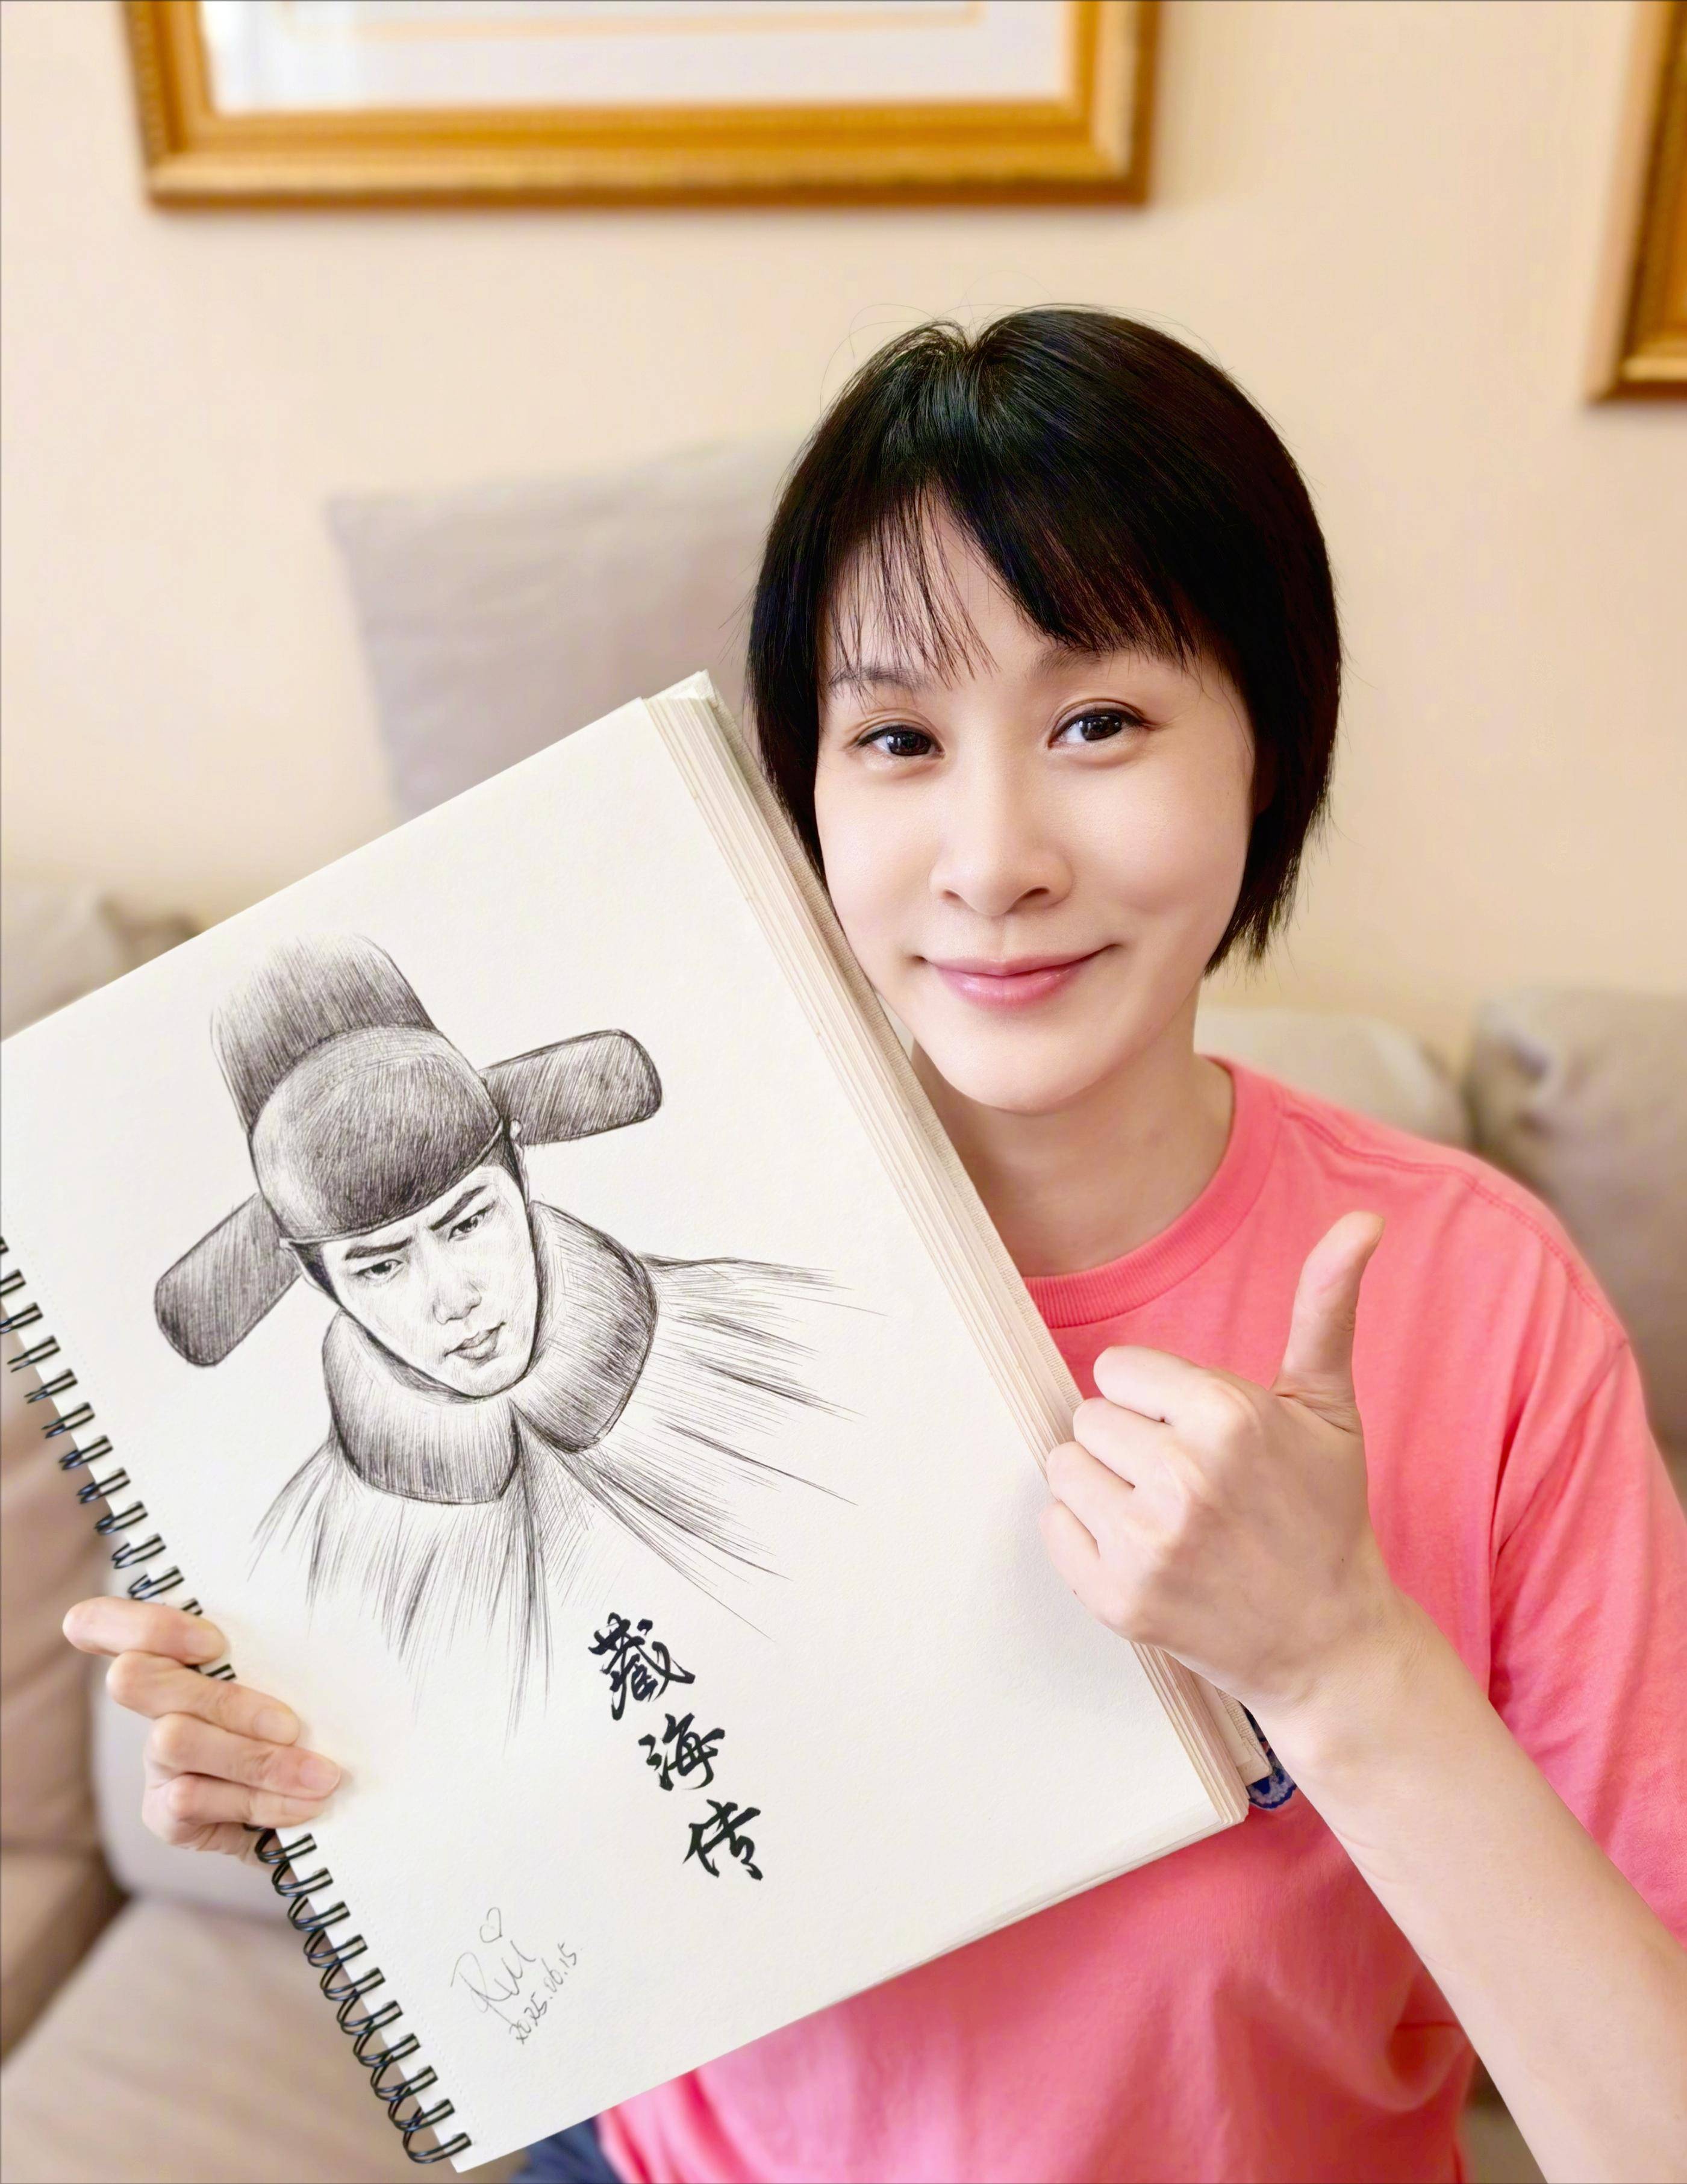 藏海传
Rui
2025.06.15